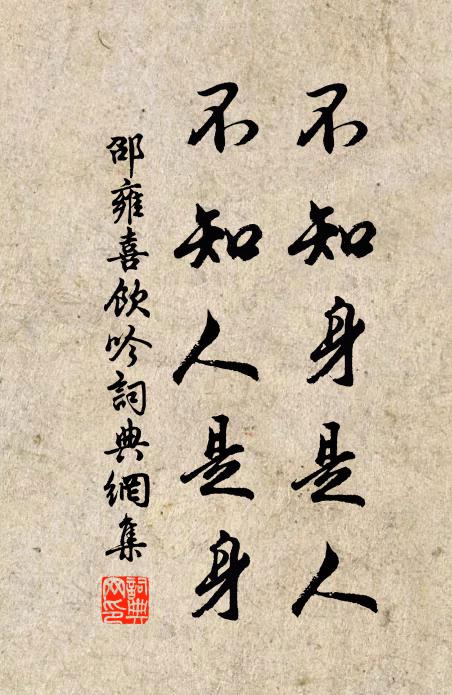 不知身是人
不知人是身
邵雍喜飲吟詞典網集
詞典网印